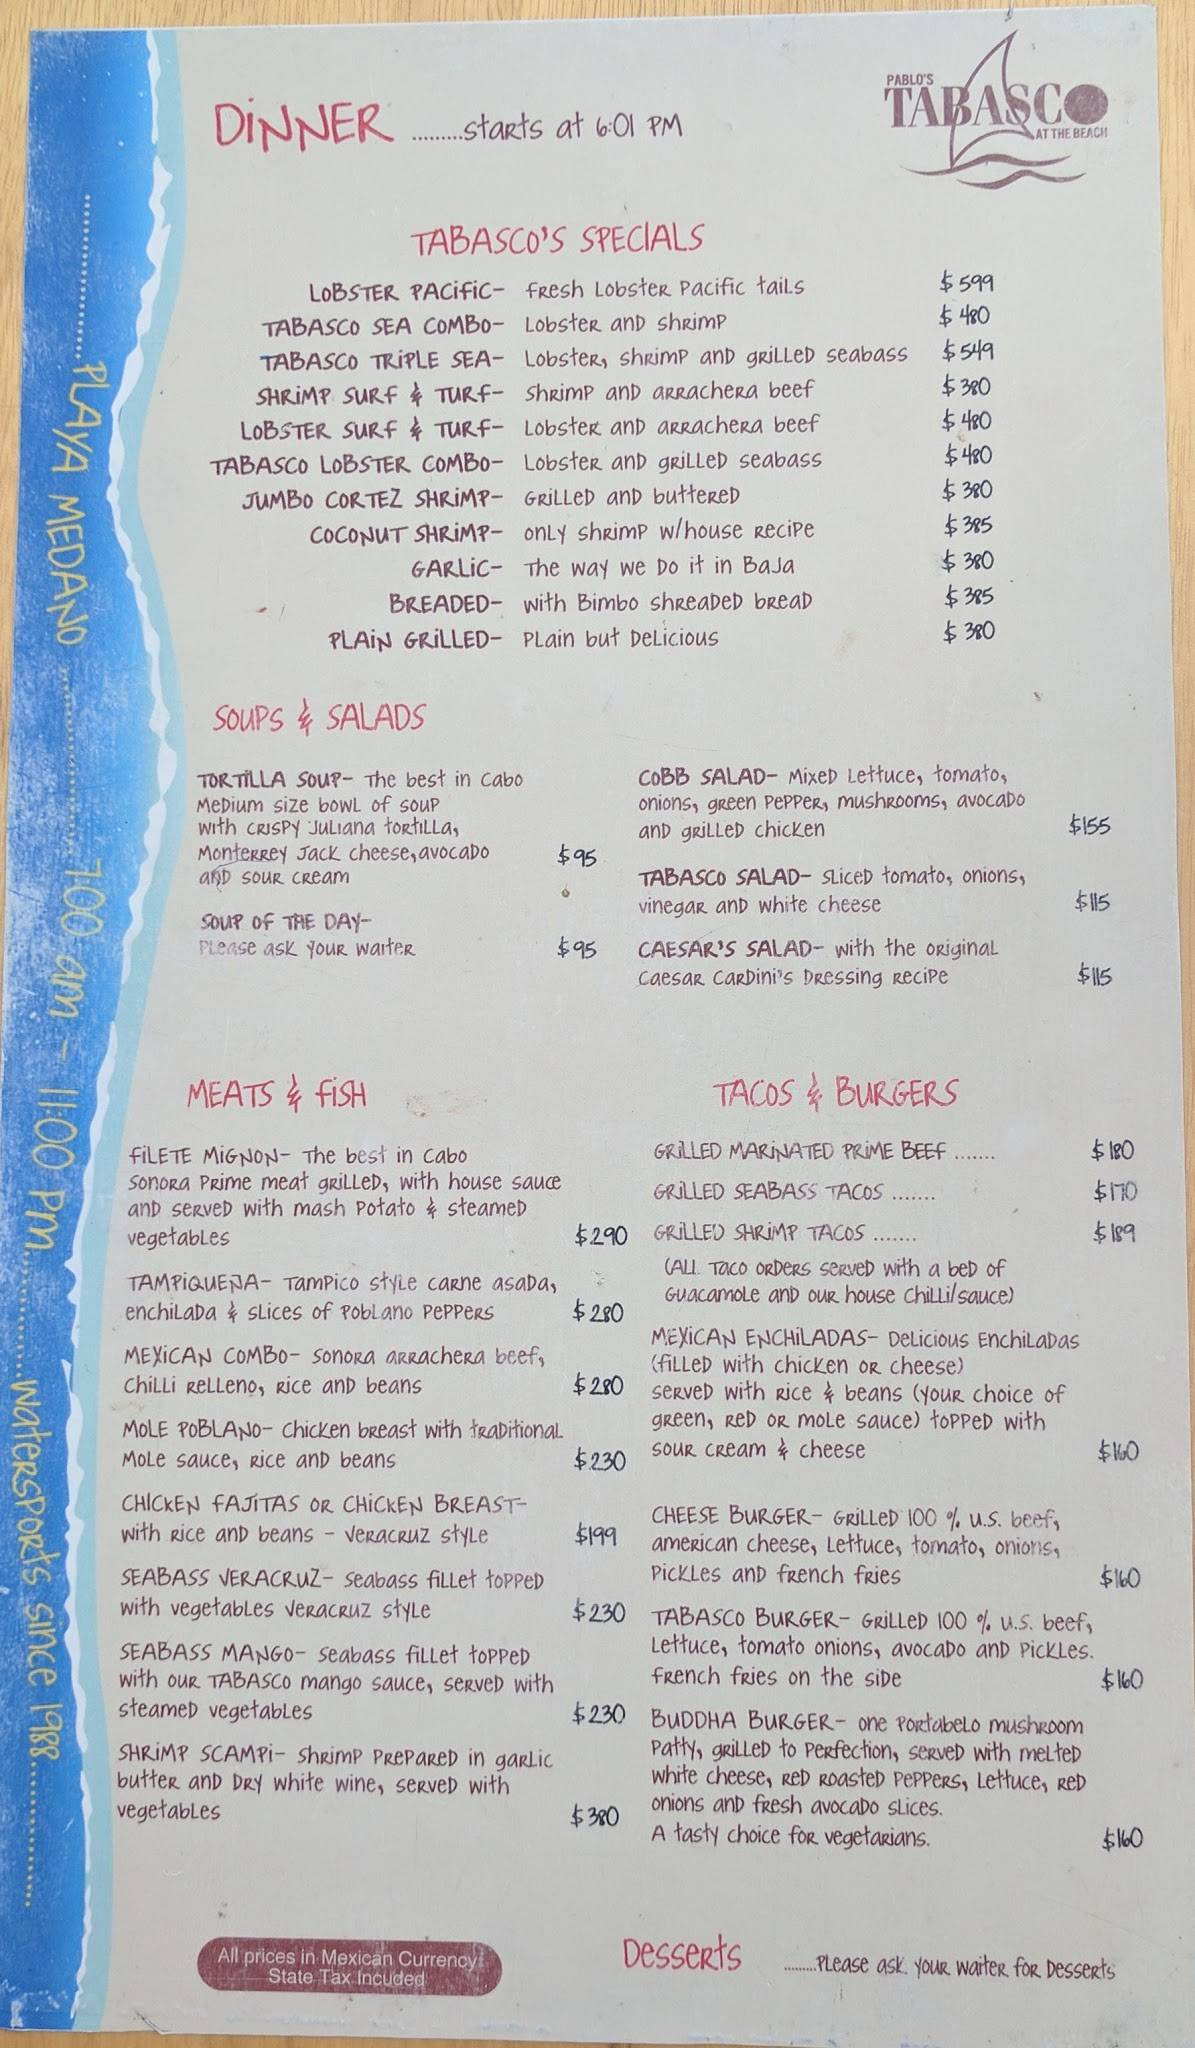 DINNER .........starts at 6:01 PM
PABLO'S
TABASCO
AT THE BEACH
TABASCO'S SPECIALS
LOBSTER PACIFIC- fresh Lobster Pacific tails $599
TABASCO SEA COMBO- Lobster and shrimp $480
TABASCO TRIPLE SEA- Lobster, shrimp and grilled seabass $549
SHRIMP SURF & TURF- Shrimp and arrachera beef $380
LOBSTER SURF & TURF- Lobster and arrachera beef $480
TABASCO LOBSTER COMBO- Lobster and grilled seabass $480
JUMBO CORTEZ SHRIMP- Grilled and buttered $380
COCONUT SHRIMP- only shrimp w/house recipe $385
GARLIC- The way we do it in Baja $380
BREADED- with Bimbo shreaded bread $385
PLAIN GRILLED- Plain but Delicious $380
SOUPS & SALADS
TORTILLA SOUP- The best in Cabo
Medium size bowl of soup
with crispy Juliana tortilla,
Monterrey Jack cheese,avocado $95
and sour cream
SOUP OF THE DAY-
Please ask your waiter $95
COBB SALAD- Mixed Lettuce, tomato,
onions, green pepper, mushrooms, avocado
and grilled chicken $155
TABASCO SALAD- Sliced tomato, onions,
vinegar and white cheese $115
CAESAR'S SALAD- with the original
Caesar Cardini's Dressing Recipe $115
MEATS & FISH
FILETE MIGNON- The best in Cabo
Sonora Prime meat grilled, with house sauce
and served with mash potato & steamed
vegetables $290
TAMPIQUEÑA- Tampico style carne asada,
enchilada & slices of Poblano Peppers $280
MEXICAN COMBO- Sonora arrachera beef,
Chilli Relleno, rice and beans $280
MOLE POBLANO- Chicken breast with traditional
Mole sauce, rice and beans $230
CHICKEN FAJITAS OR CHICKEN BREAST-
with rice and beans - Veracruz style $199
SEABASS VERACRUZ- Seabass fillet topped
with vegetables Veracruz style $230
SEABASS MANGO- Seabass fillet topped
with our TABASCO mango sauce, served with
steamed vegetables $230
SHRIMP SCAMPI- Shrimp prepared in garlic
butter and dry white wine, served with
vegetables $380
TACOS & BURGERS
GRILLED MARINATED PRIME BEEF ....... $180
GRILLED SEABASS TACOS ....... $170
GRILLED SHRIMP TACOS ....... $189
(ALL Taco orders served with a bed of
Guacamole and our house chilli/sauce)
MEXICAN ENCHILADAS- Delicious Enchiladas
(filled with chicken or cheese)
served with rice & beans (your choice of
green, red or mole sauce) topped with
sour cream & cheese $160
CHEESE BURGER- Grilled 100 % U.S. beef,
american cheese, Lettuce, tomato, onions,
Pickles and french fries $160
TABASCO BURGER- Grilled 100 % U.S. beef,
Lettuce, tomato onions, avocado and Pickles.
french fries on the side $160
BUDDHA BURGER- one Portabelo mushroom
Patty, grilled to perfection, served with melted
white cheese, red roasted peppers, Lettuce, red
onions and fresh avocado slices.
A tasty choice for vegetarians. $160
All prices in Mexican Currency
State Tax Incuded
Desserts .........Please ask your waiter for Desserts
PLAYA MEDANO 7:00 am - 11:00 pm watersports since 1988